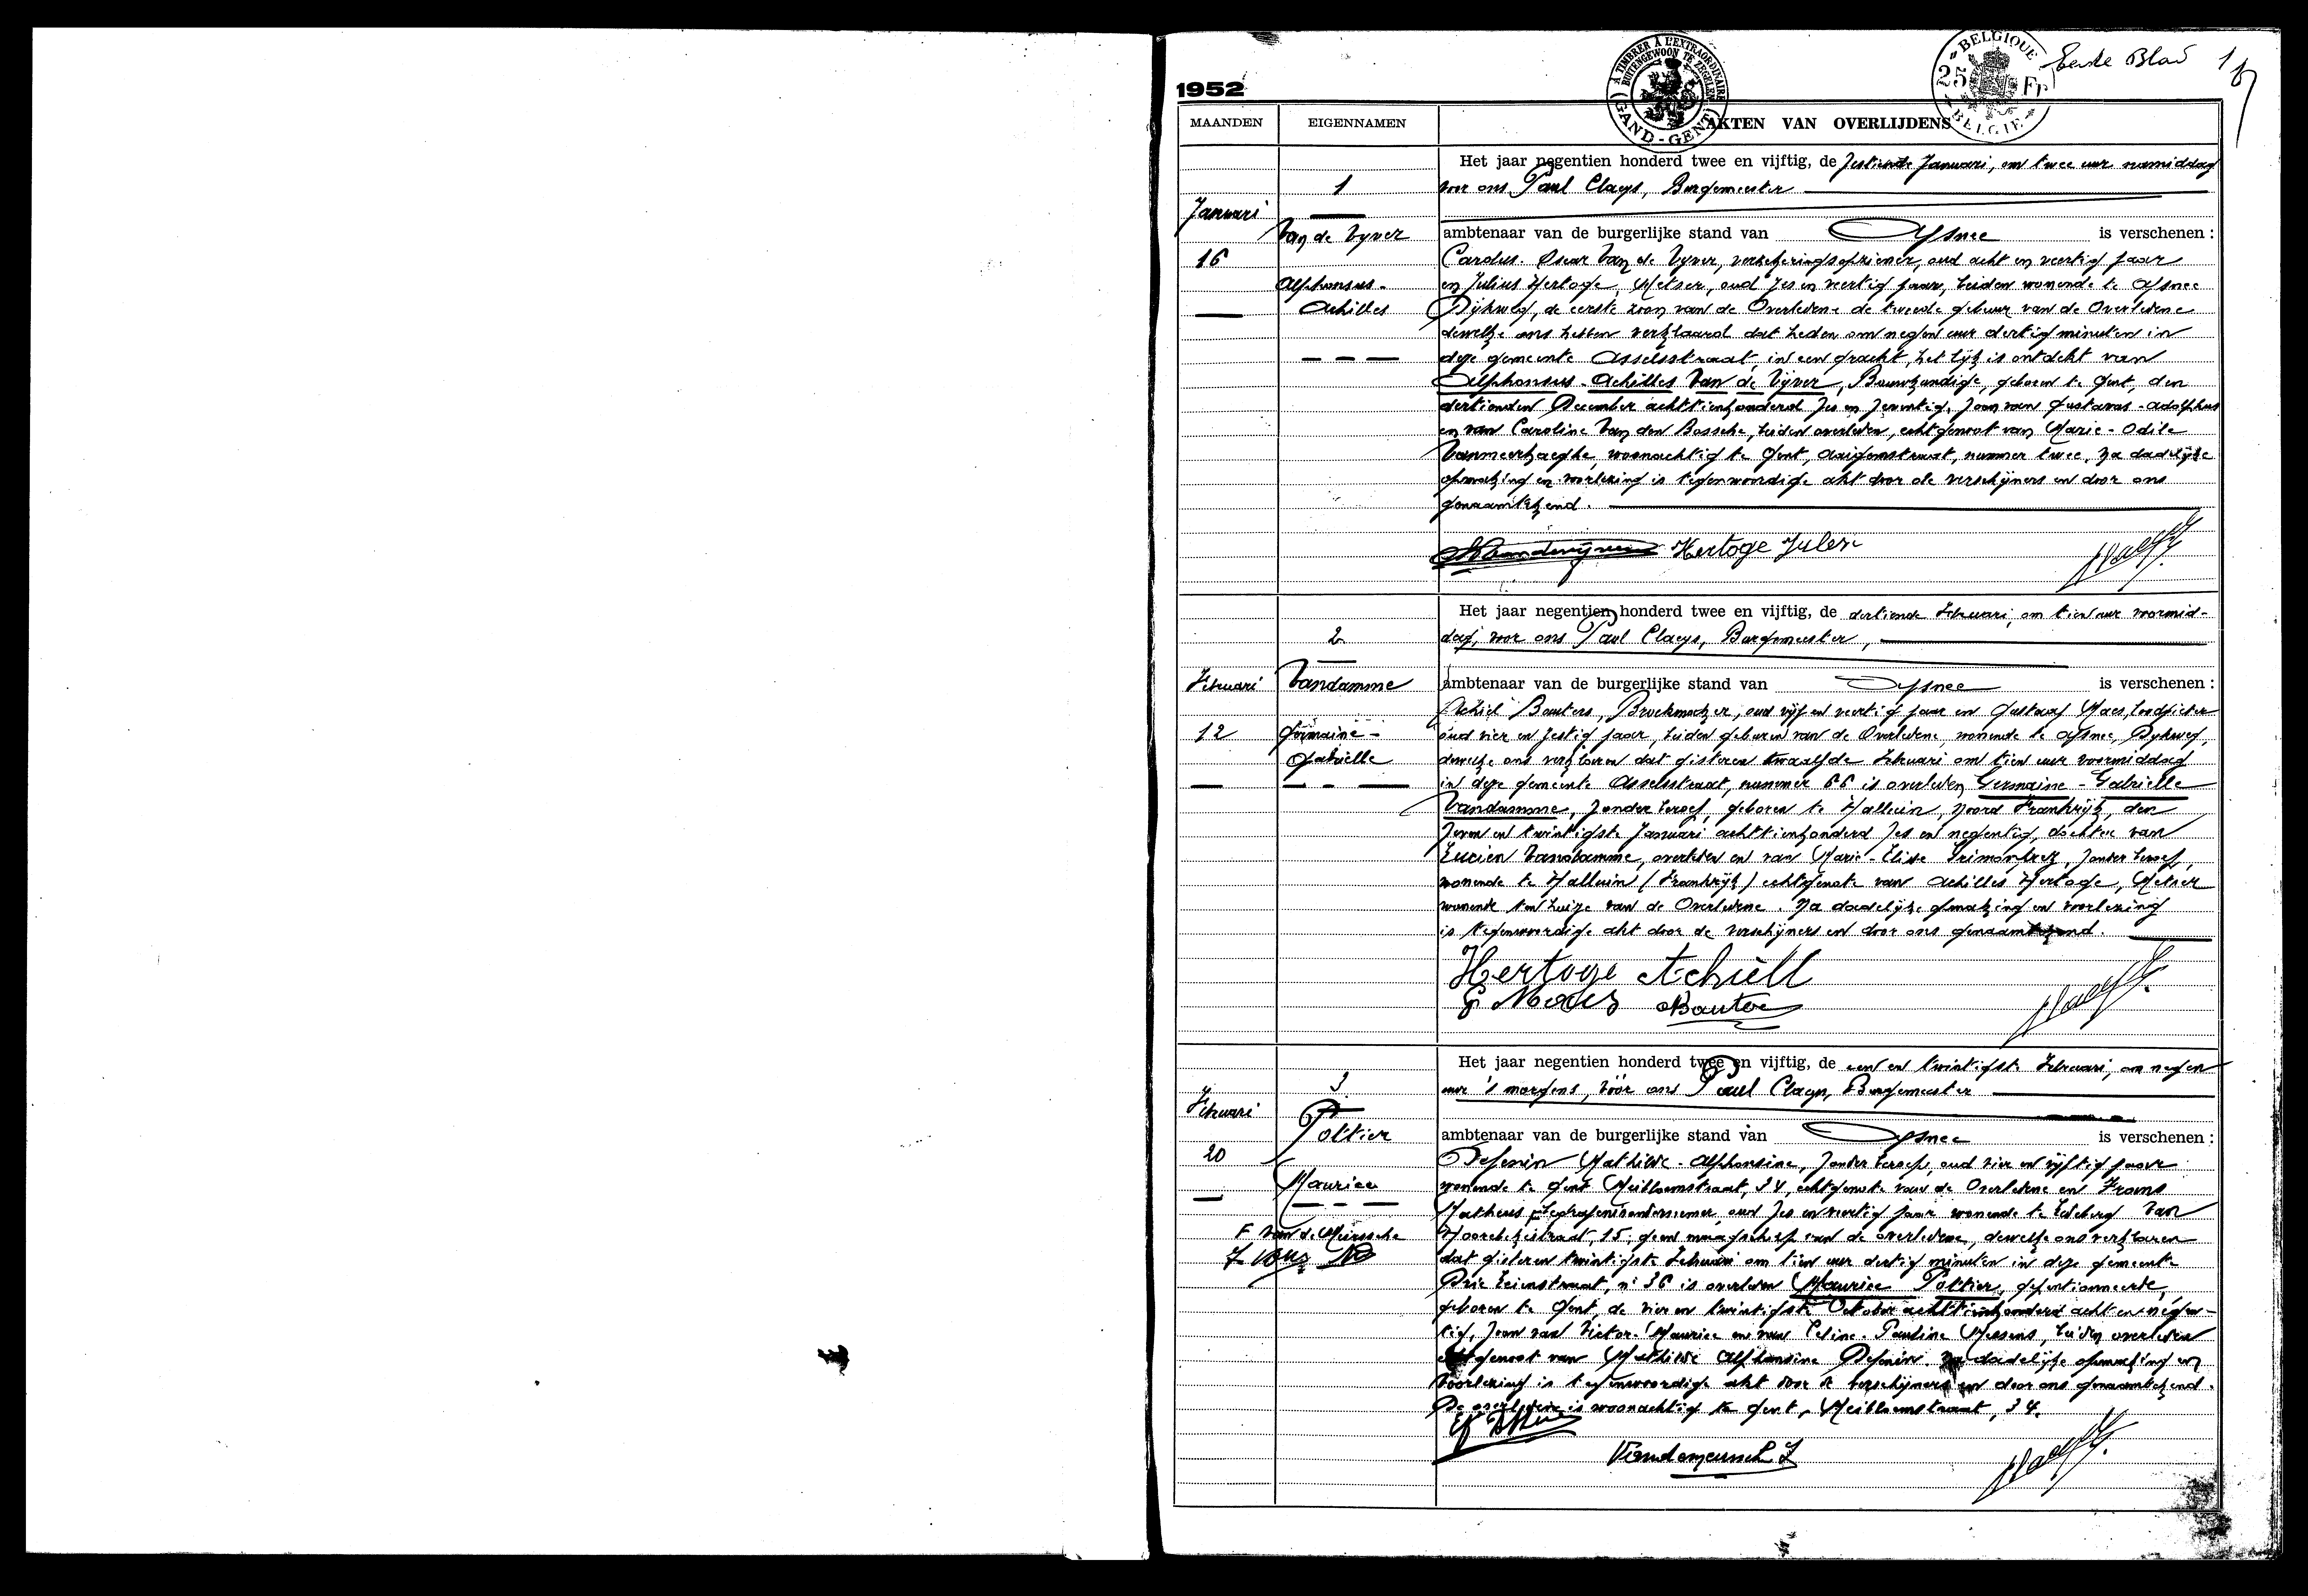 1952
A TIMBRER À L'EXTRAORDINAIRE
BUITENGEWOON TE ZEGELEN
GAND-GENT
BELGIQUE
25 Fr
BELGIE
Eerste Blad 1
MAANDEN
EIGENNAMEN
AKTEN VAN OVERLIJDENS
Januari
16
1
Van de Vyver
Alphonsus-
Achilles
Het jaar negentien honderd twee en vijftig, de zestiende Januari, om twee uur namiddag
voor ons Paul Claeys, Burgemeester
ambtenaar van de burgerlijke stand van Afsnee is verschenen :
Oscar Van de Vyver, oud acht en veertig jaar
en Julius Hertoge, Metser, oud zes en veertig jaar, beiden wonende te Afsnee
Dijkweg, de eerste zoon van de Overledene de tweede gebuur van de Overledene
dewelke ons hebben verklaard dat heden om negen uur dertig minuten in
deze gemeente Asselsstraat, in een gracht, het lijk is ontdekt van
Alphonsus-Achilles Van de Vijver, Bouwkundige, geboren te Gent, den
dertienden December achttienhonderd zes en zeventig, zoon van Gustavas-Adolphus
en van Caroline Van den Bossche, beiden overleden, echtgenoot van Marie-Odile
Vanmeerhaeghe, woonachtig te Gent, nummer twee, Na dadelijke
opmaking en voorlezing is tegenwoordige akt door de verschijners en door ons
genaamtekend.
Hertoge Julen
Februari
12
2
Vandamme
Germaine-
Gabrielle
Het jaar negentien honderd twee en vijftig, de dertiende Februari, om tien uur voormid-
dag, voor ons Paul Claeys, Burgemeester,
ambtenaar van de burgerlijke stand van Afsnee is verschenen :
Achiel Bauters, oud vijf en veertig jaar en Gustaaf Maes, Loodgieter
oud vier en zestig jaar, beiden geburen van de Overledene, wonende te Afsnee, Dykweg,
dewelke ons verklaren dat gisteren twaalfde Februari om tien uur voormiddag
in deze gemeente Asselsstraat, nummer 66 is overleden Germaine-Gabrielle
Vandamme, zonder beroep, geboren te Halluin, Noord Frankrijk, den
zeven en twintigste Januari achttienhonderd zes en negentig, dochter van
Lucien Vandamme, overleden en van Marie-Elise zonder beroep,
wonende te Halluin (Frankrijk) echtgenote van Achilles Hertoge, Metser
wonende ten huize van de Overledene. Na dadelijke opmaking en voorlezing
is tegenwoordige akt door de verschijners en door ons genaamtekend.
Hertoge Achiell
G Maes Bauters
Februari
20
3
Pottier
Maurice
F Van de Meirssche
Het jaar negentien honderd twee en vijftig, de een en twintigste Februari, om negen
uur 's morgens, vóór ons Paul Claeys, Burgemeester
ambtenaar van de burgerlijke stand van Afsnee is verschenen :
Mathilde-Alphonsine, zonder beroep, oud vier en vijftig jaar
wonende te Gent Meibloemstraat, 34, echtgenote van de Overledene en Frans
Matheus oud zes en veertig jaar wonende te Ledeberg Van
15, geen maagschap van de overledene, dewelke ons verklaren
dat gisteren twintigste Februari om tien uur dertig minuten in deze gemeente
Drie Leienstraat, n° 36 is overleden Maurice Pottier, gepentionneerde,
geboren te Gent, de vier en twintigste October achttienhonderd acht en negen-
tig, zoon van Victor-Maurice en van Celine-Pauline Messens, beiden overleden
echtgenoot van Mathilde Alphonsine Na dadelijke opmaking en
voorlezing is tegenwoordige akt door de verschijners en door ons genaamtekend.
De overledene is woonachtig te Gent, Meibloemstraat, 34.